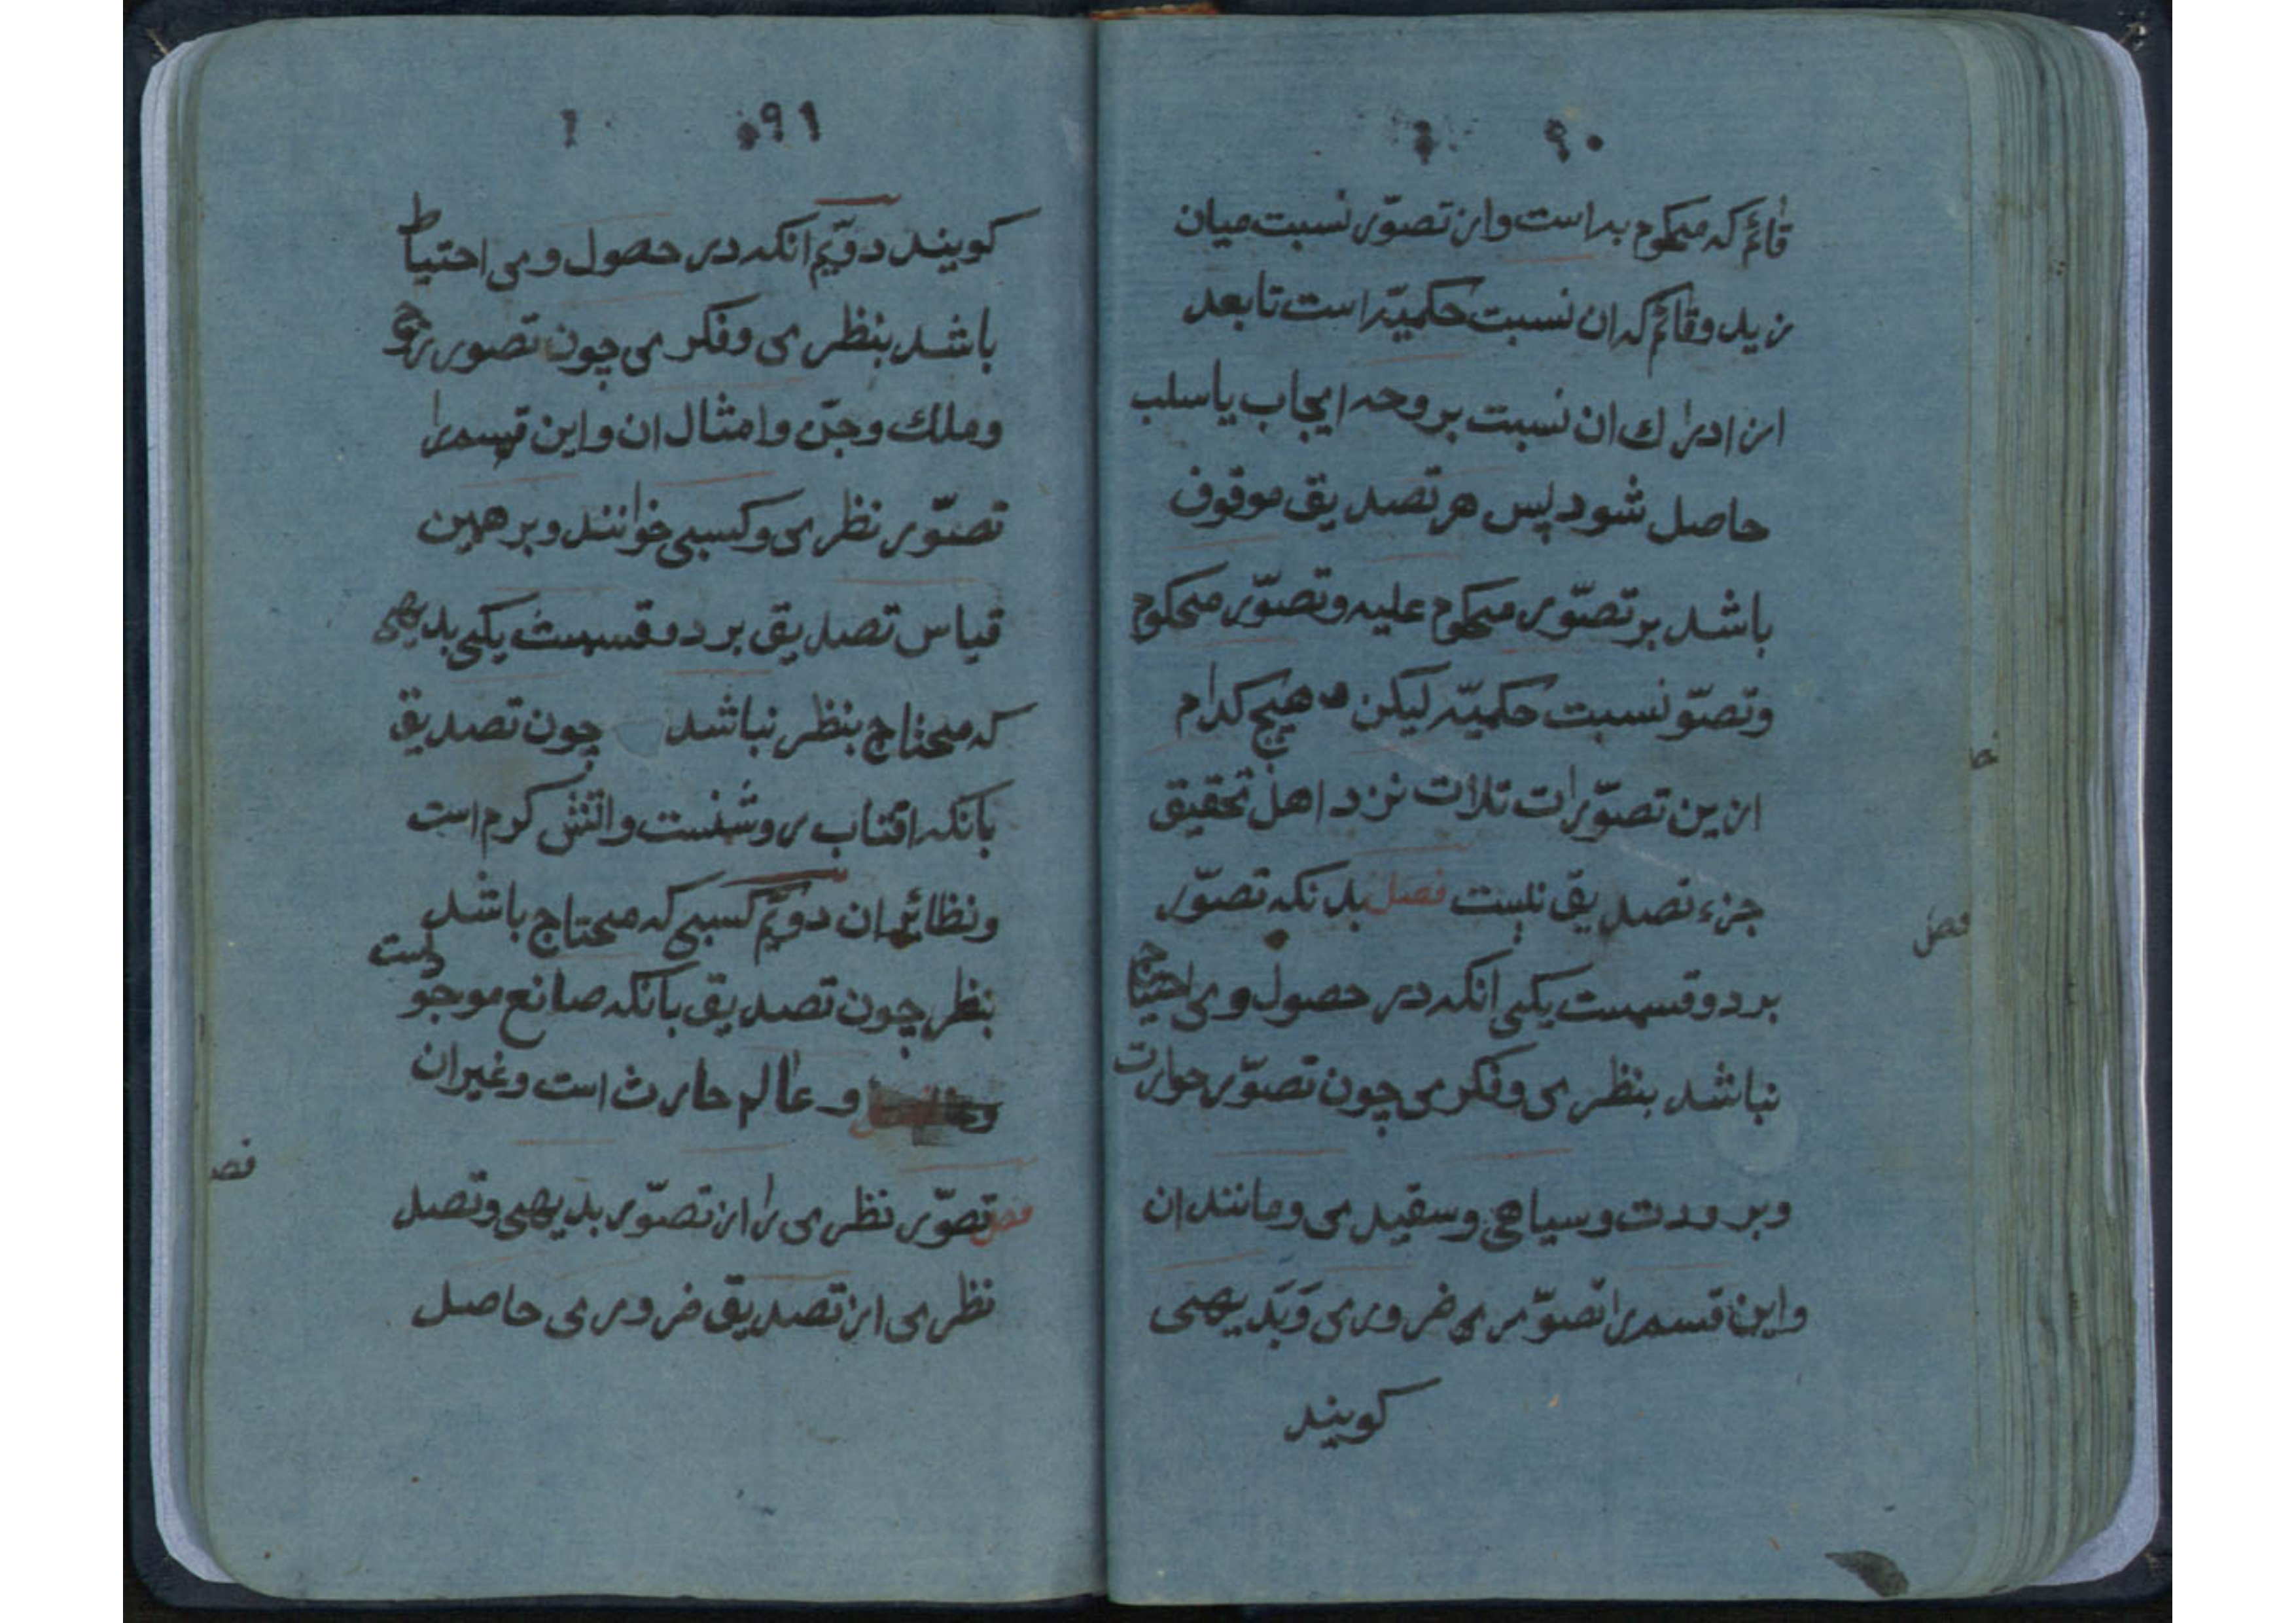 ۹۰
قائم که محکوم به است واز تصوّر نسبت میان
زید وقائم که ان نسبت حکمیّه است تا بعد
از ادراك ان نسبت بر وجه ایجاب یا سلب
حاصل شود پس هر تصدیق موقوف
باشد بر تصوّر محکوم علیه وتصوّر محکوم
وتصوّ نسبت حکمیّه لیکن هیچ کدام
ازین تصوّرات ثلاث نزد اهل تحقیق
جزء تصدیق نیست فصل بدنکه تصوّر
فصل
بر دو قسمست یکی انکه در حصول وی احتیاج
نباشد بنظری وفکری چون تصوّر حرارت
وبرودت وسیاهی وسفیدی ومانند ان
واین قسم را تصوّر ری ضروری وبَدیهی
کویند
۹۱
کویند دویّم انکه در حصول وی احتیاط
باشد بنظری وفکری چون تصور روح
وملك وجنّ وامثال ان واین قسم را
تصوّر نظری وکسبی خوانند وبر همین
قیاس تصدیق بر دو قسمست یکی بدیهی
که محتاج بنظر نباشد چون تصدیق
بانکه افتاب روشنست واتش کرم است
ونظائر ان دویّم کسبی که محتاج باشد
بنظر چون تصدیق بانکه صانع موجو
دست
و عالم حادث است وغیران
فص
فصل تصوّر نظری را از تصوّر بدیهی وتصد
نظری از تصدیق ضروری حاصل